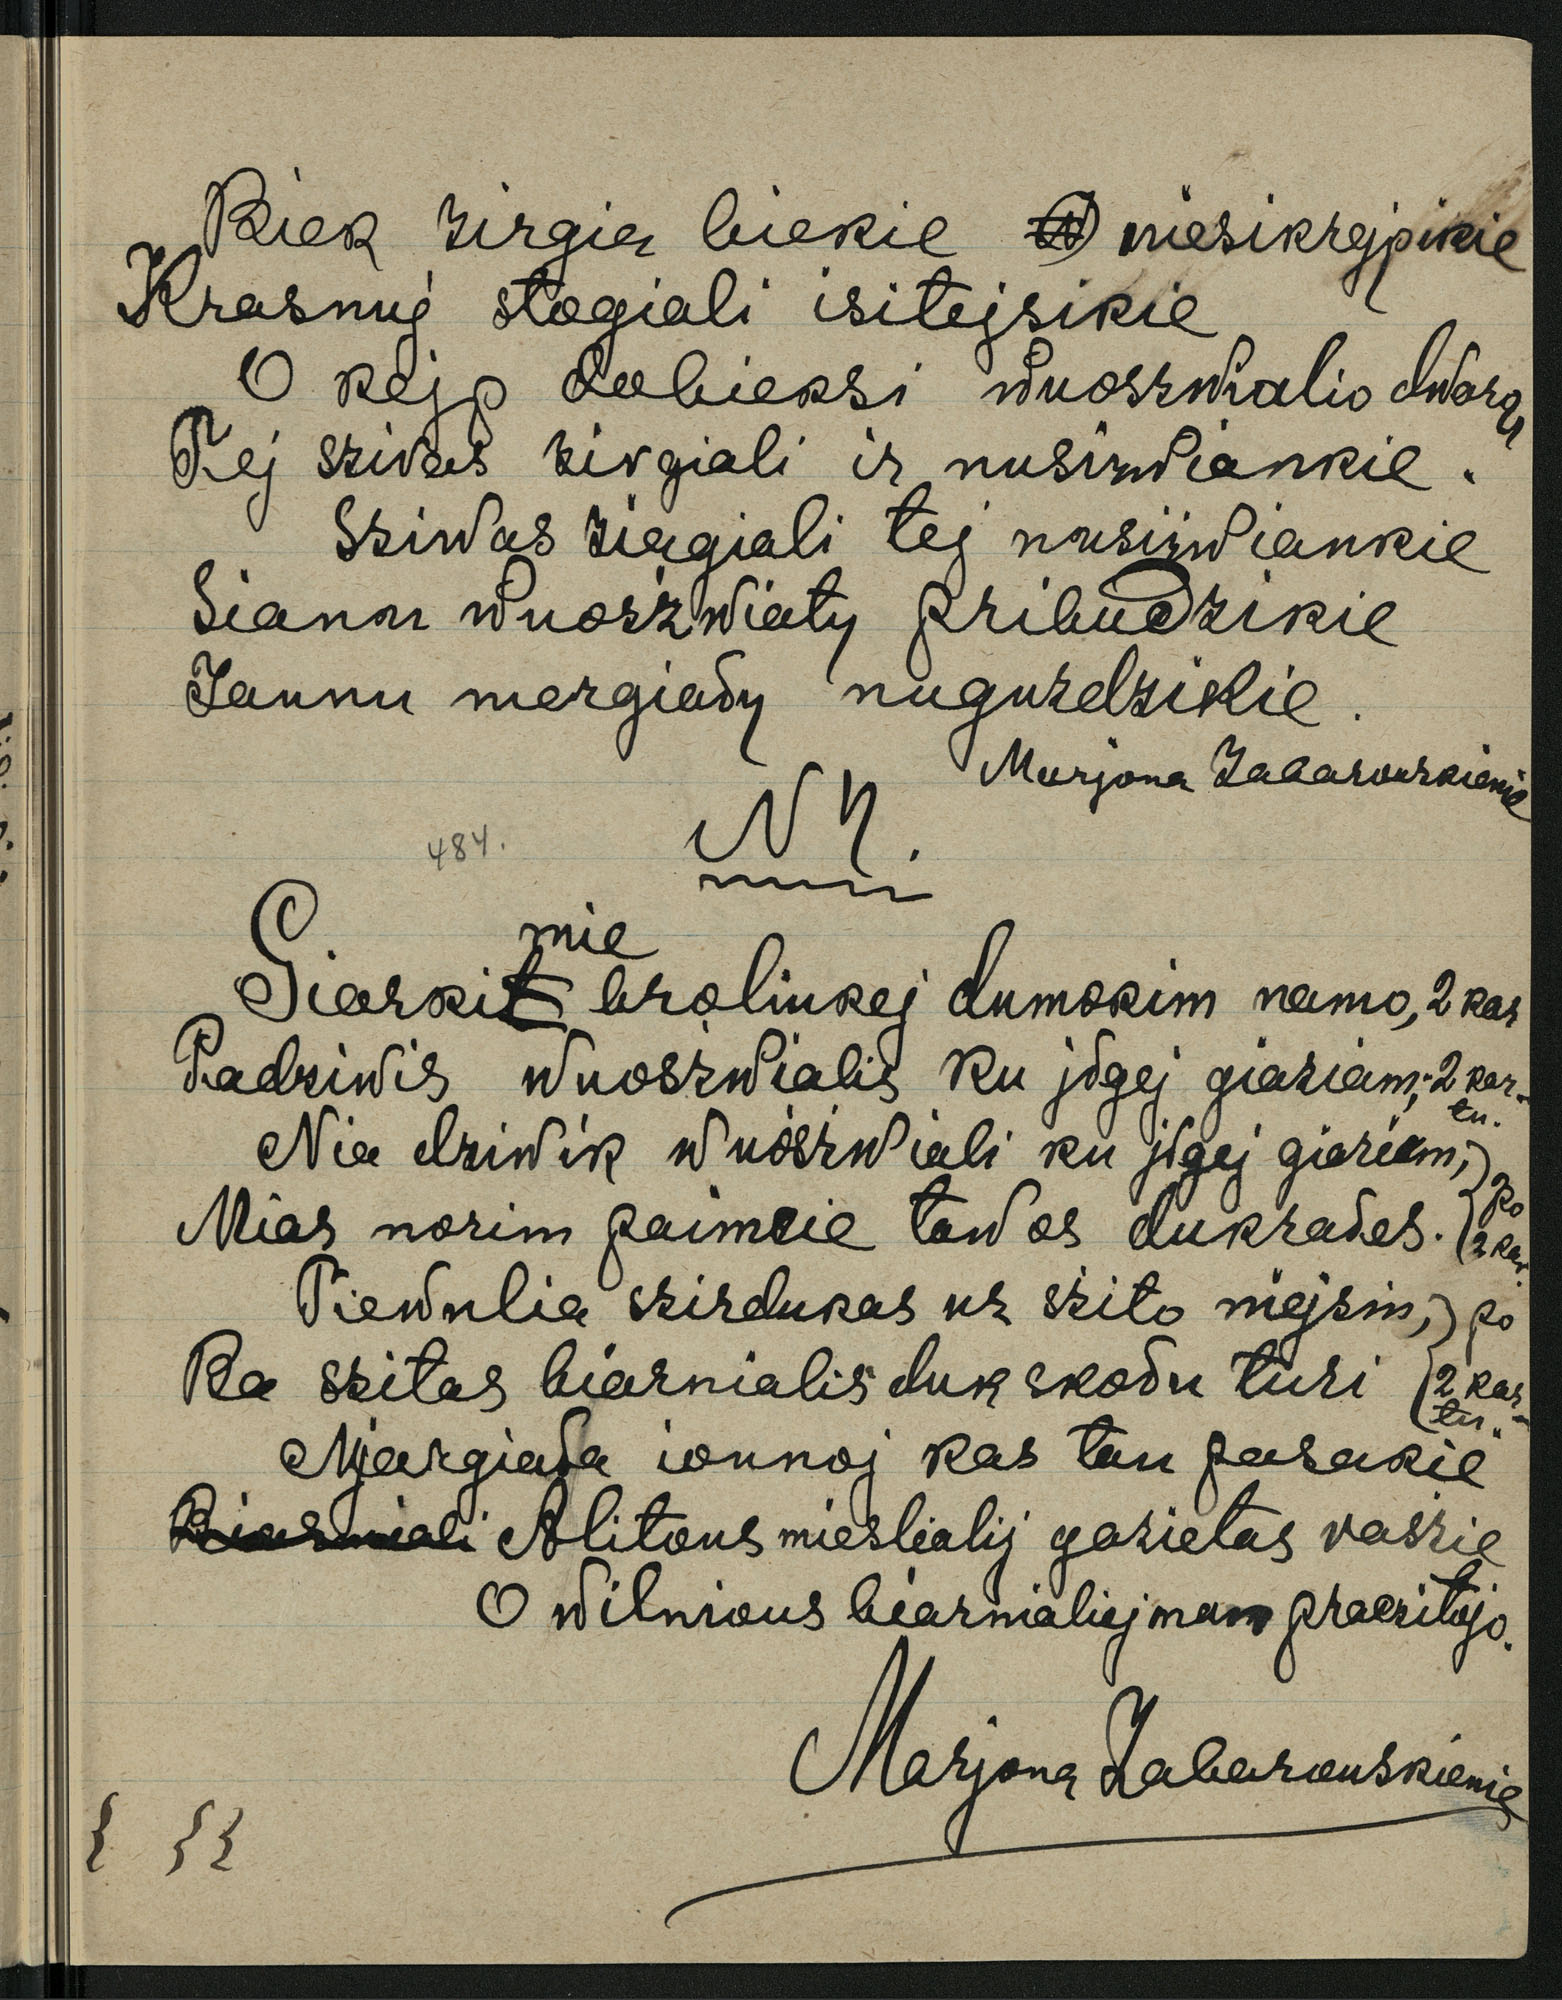 Biek zirgia biekie niesikrejpikie
Krasnuj stogiali isitejsikie
O kejp dabieksi wuoszwialio dwarą
Tej sziwas zirgiali ir nusizwiankie.
Sziwas zirgiali tej nusizwiankie
Sianu wuoszwiaty pribudzikie
Jaunu mergiady nugurdzikie.
Marjona Zabarouskienie
484.
N 7.
mie
Giarkit broliukej dumokim namo, 2 kar
Padziwis wuoszwialis ku jlgej giariam; 2 kar-
tu.
Nia dziwik wuoszwiali ku jlgej giariam;
po
Mias norim paimcie tawos dukrales. 2 kar.
Tiewulia szirdukas uz szito mejsin, po
Ba szitas biarnialis duk skodu turi 2 kar-
tu.
Mjargiala iounoj kas tau pasakie
Biarniali Alitous miesliālij gazietas raszie
O wilnious biarnialiej mum praczitojo.
Marjona Zabarouskienie